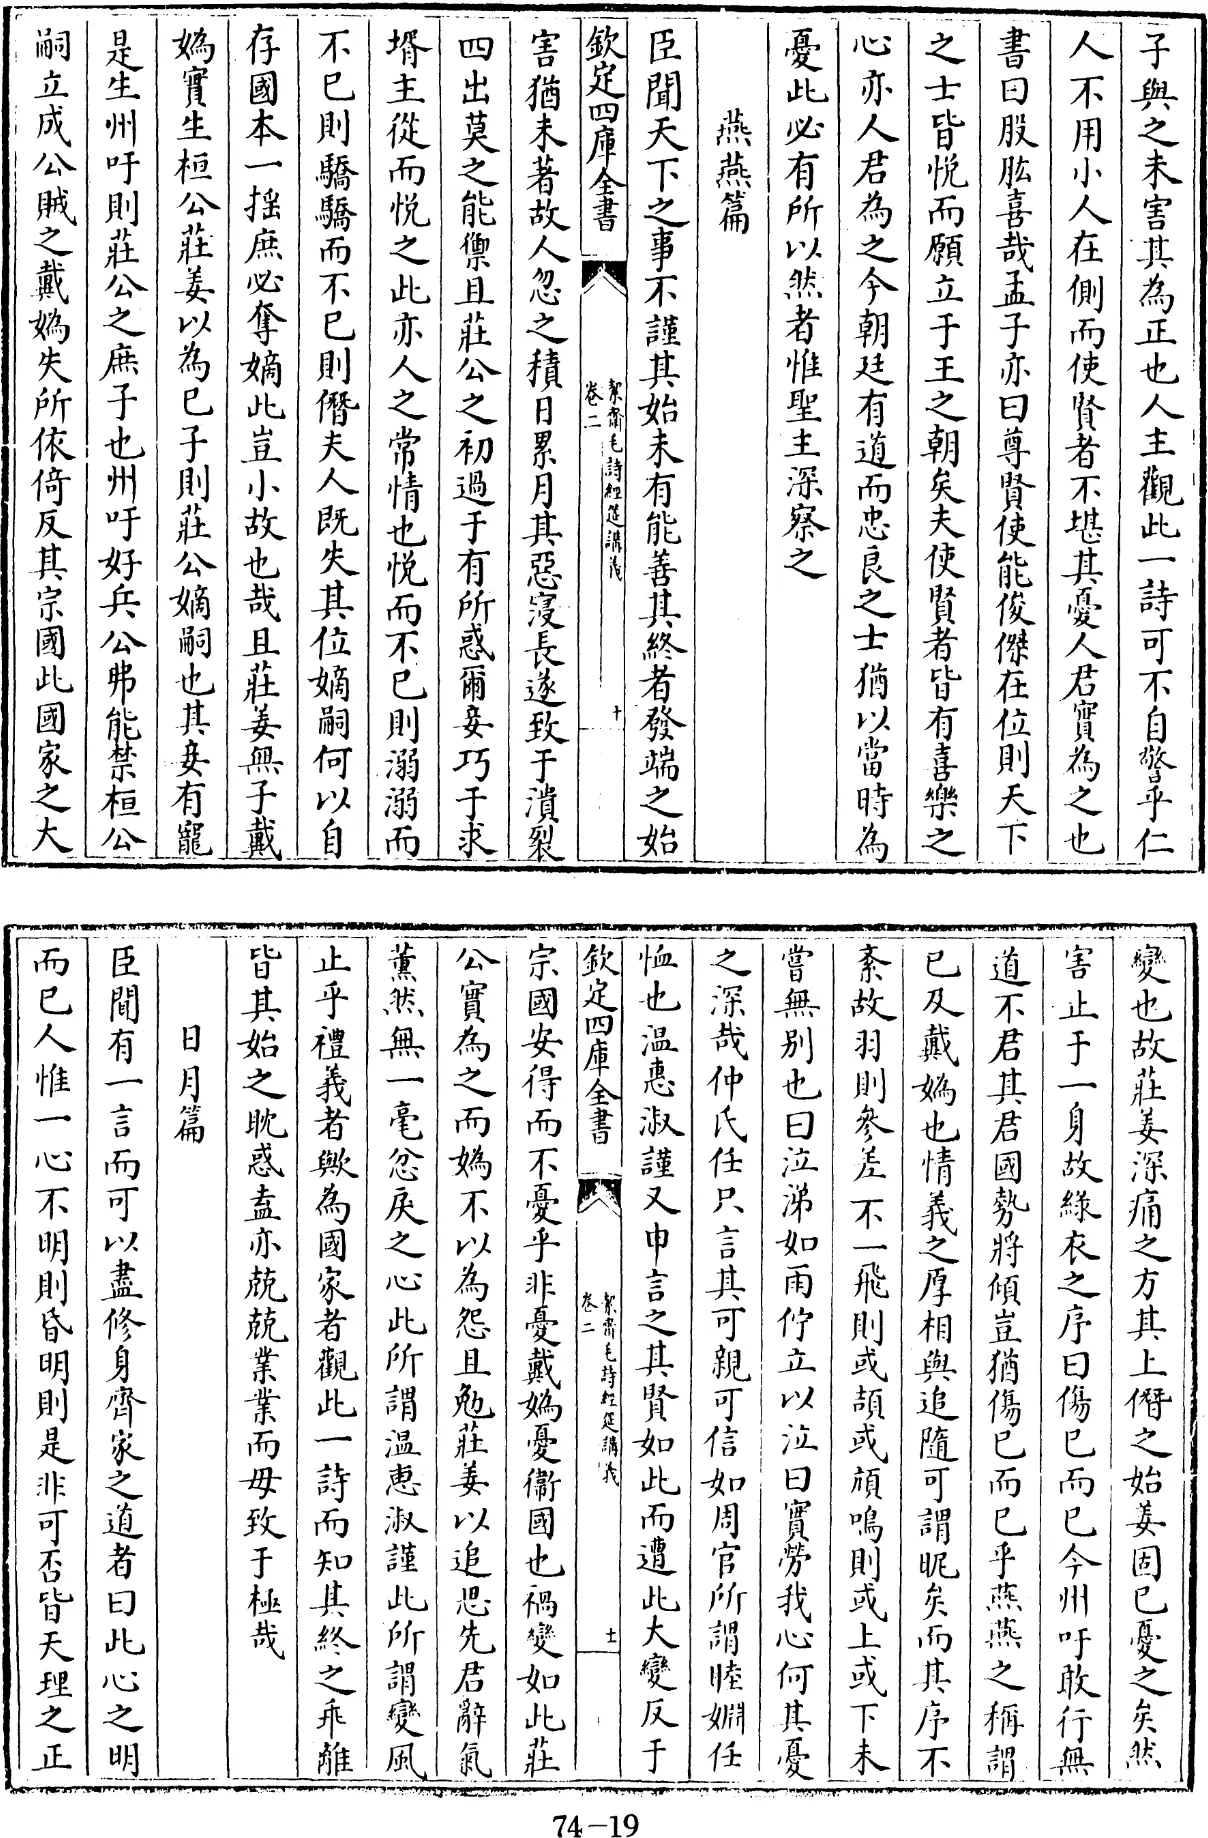 子與之未害其為正也人主觀此一詩可不自警乎仁
人不用小人在側而使賢者不堪其憂人君實為之也
書曰股肱喜哉孟子亦曰尊賢使能俊傑在位則天下
之士皆悦而願立于王之朝矣夫使賢者皆有喜樂之
心亦人君為之今朝廷有道而忠良之士猶以當時為
憂此必有所以然者惟聖主深察之
燕燕篇
臣聞天下之事不謹其始未有能善其終者發端之始
欽定四庫全書
絜齋毛詩經筵講義
卷二
十
害猶未著故人忽之積日累月其惡寖長遂致于潰裂
四出莫之能禦且莊公之初過于有所惑爾妾巧于求
壻主從而悦之此亦人之常情也悦而不已則溺溺而
不已則驕驕而不已則僭夫人既失其位嫡嗣何以自
存國本一揺庶必奪嫡此豈小故也哉且莊姜無子戴
媯實生桓公莊姜以為已子則莊公嫡嗣也其妾有寵
是生州吁則莊公之庶子也州吁好兵公弗能禁桓公
嗣立成公賊之戴媯失所依倚反其宗國此國家之大
變也故莊姜深痛之方其上僭之始姜固已憂之矣然
害止于一身故緑衣之序曰傷已而已今州吁敢行無
道不君其君國勢將傾豈猶傷已而已乎燕燕之稱謂
已及戴媯也情義之厚相與追隨可謂昵矣而其序不
紊故羽則參差不一飛則或頡或頏鳴則或上或下未
嘗無别也曰泣涕如雨佇立以泣曰實勞我心何其憂
之深哉仲氏任只言其可親可信如周官所謂睦婣任
恤也温惠淑謹又申言之其賢如此而遭此大變反于
欽定四庫全書
絜齋毛詩經筵講義
卷二
十一
宗國安得而不憂乎非憂戴媯憂衞國也禍變如此莊
公實為之而媯不以為怨且勉莊姜以追思先君辭氣
薫然無一毫忿戾之心此所謂温恵淑謹此所謂變風
止乎禮義者歟為國家者觀此一詩而知其終之乖離
皆其始之耽惑盍亦兢兢業業而毋致于極哉
日月篇
臣聞有一言而可以盡修身齊家之道者曰此心之明
而已人惟一心不明則昏明則是非可否皆天理之正
74-19